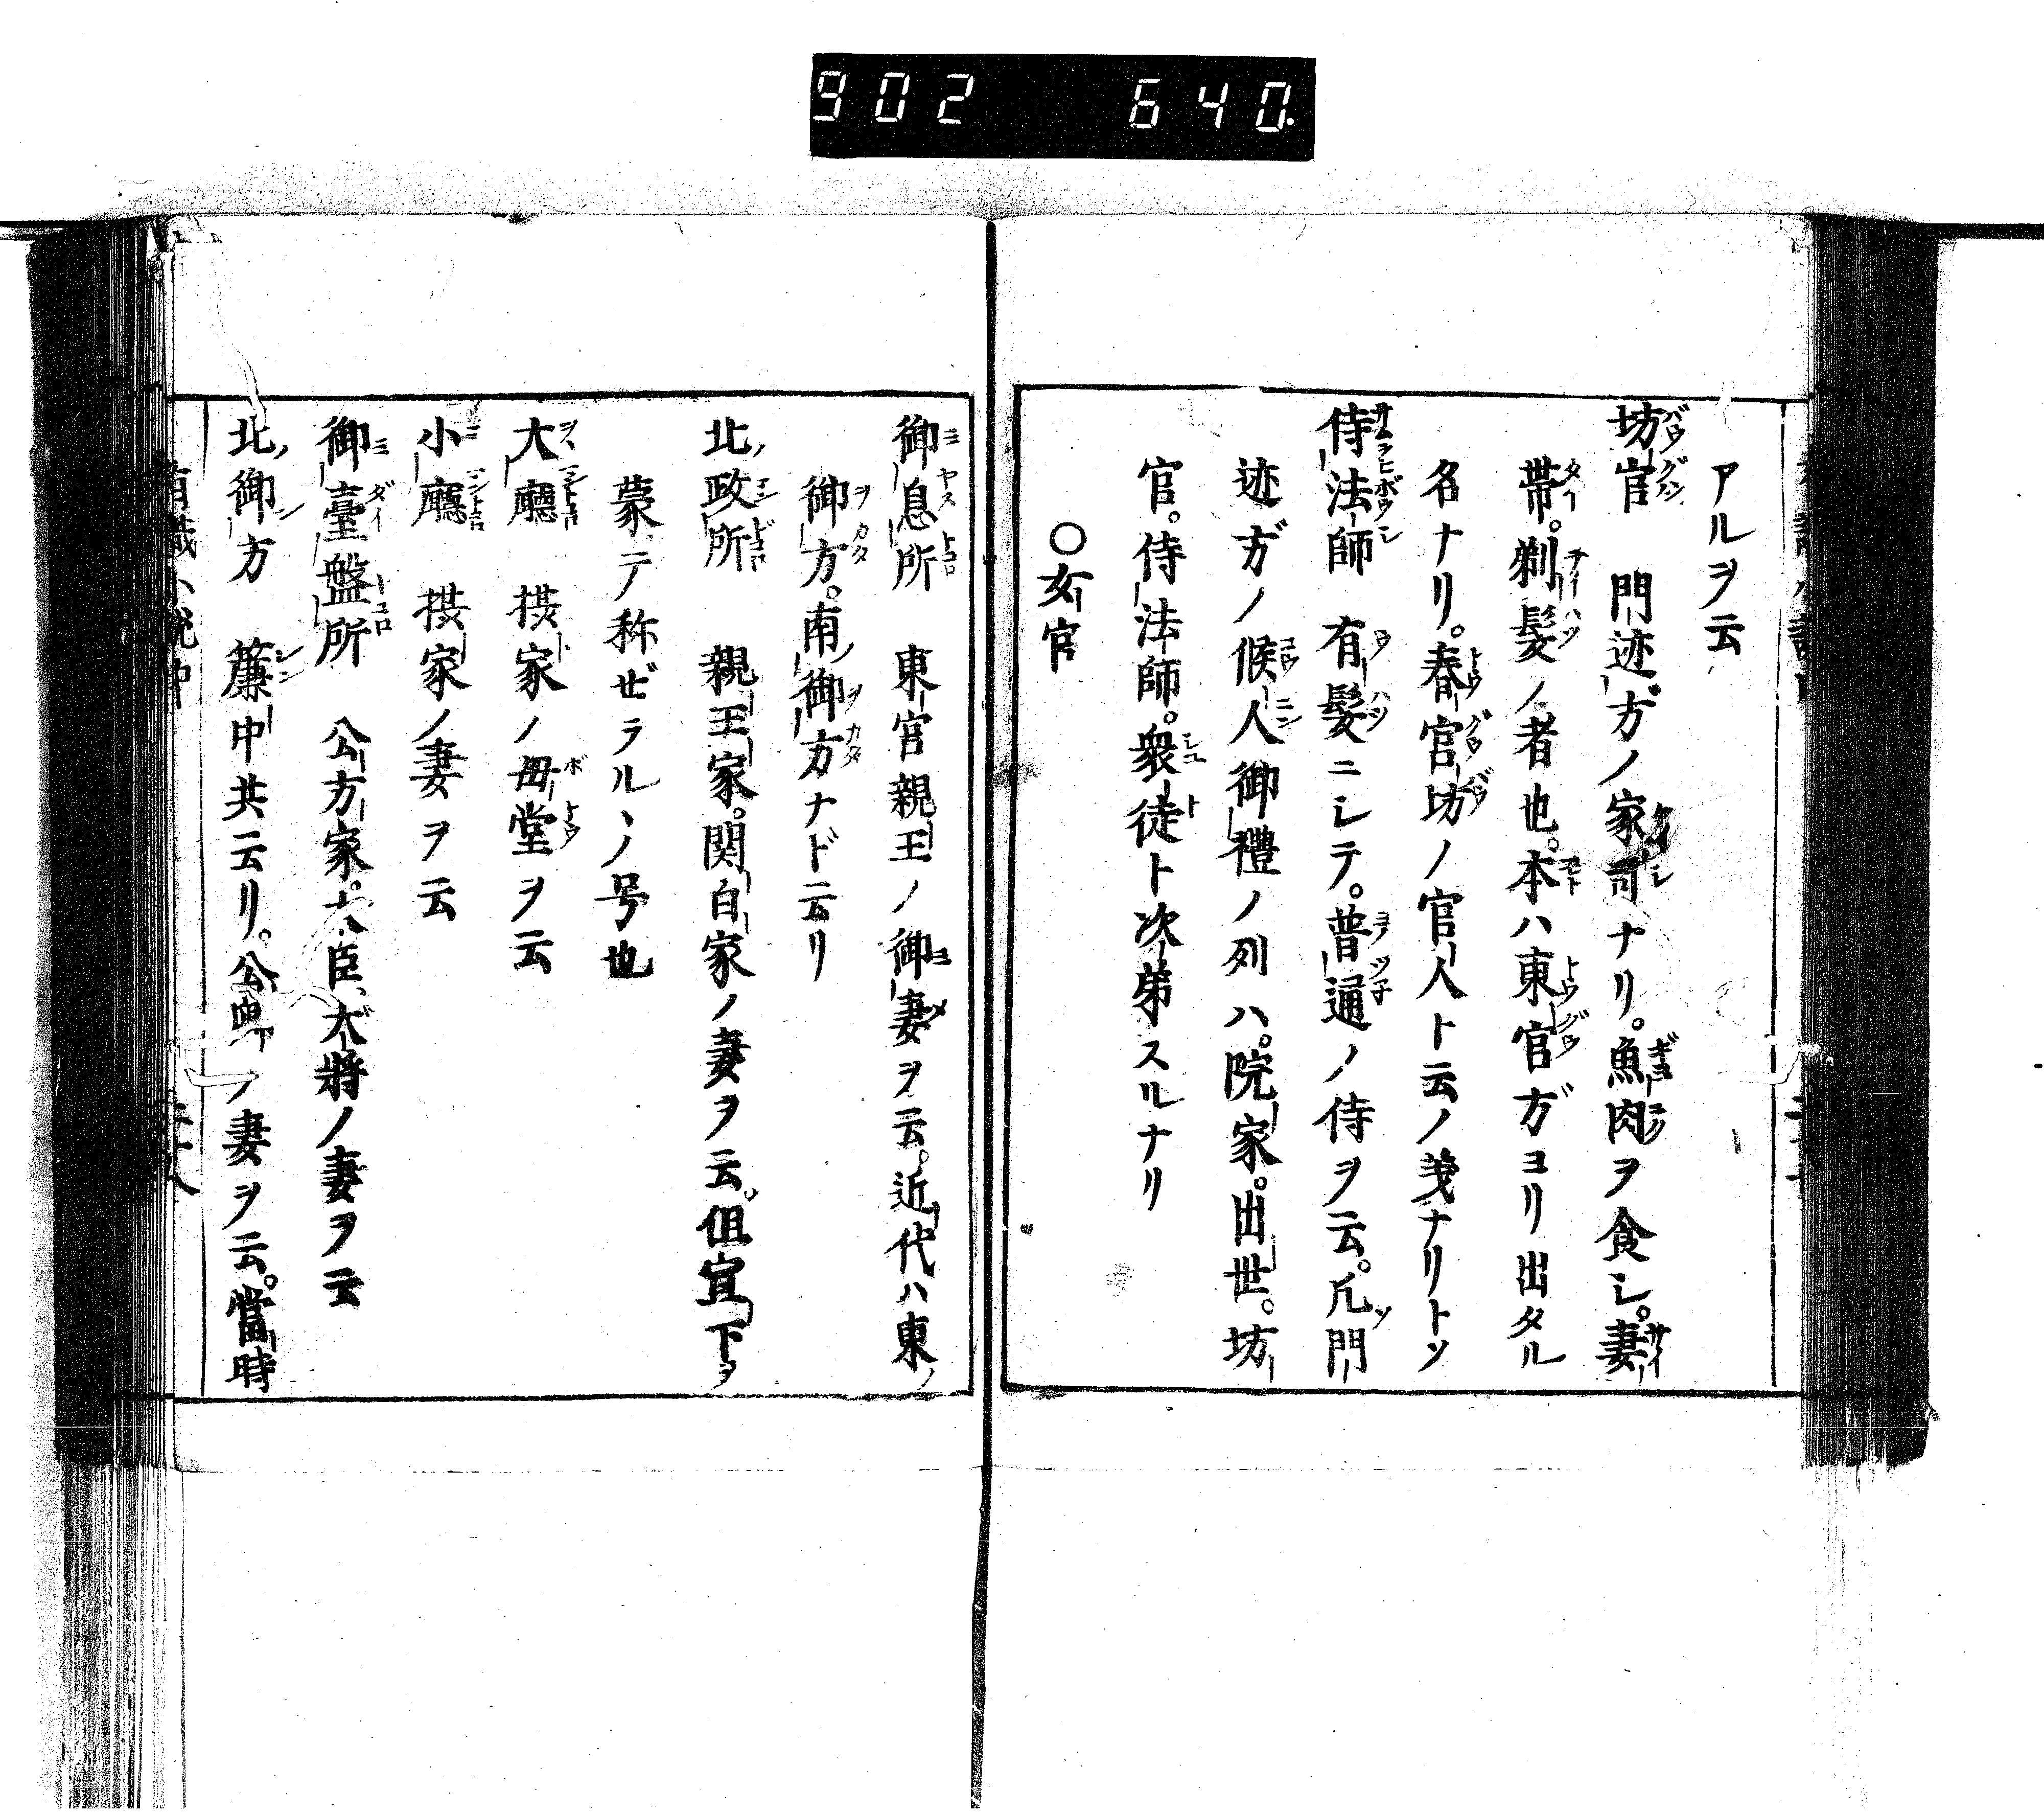 902 640.
アルヲ云
坊官 門迹ガタノ家司ナリ。魚肉ヲ食シ。妻
帯。剃髮ノ者也。本ハ東宮ガタヨリ出タル
名ナリ。春宮坊ノ官人ト云ノ義ナリトソ
侍法師 有髮ニシテ。普通ノ侍ヲ云。凡門
迹方ノ候人御禮ノ列ハ。院家。出世。坊
官。侍法師。衆徒ト次第スルナリ
〇女官
御息所 東宮親王ノ御妻ヲ云。近代ハ東ノ
御方。南ノ御方ナド云リ
北ノ政所 親王家。関白家ノ妻ヲ云。但宣下ヲ
蒙テ称ゼラルヽノ号也
大廳 摂家ノ母堂ヲ云
小廳 摂家ノ妻ヲ云
御臺盤所 公方家。大臣、大將ノ妻ヲ云
北ノ御方 簾中共云リ。公卿ノ妻ヲ云。當時